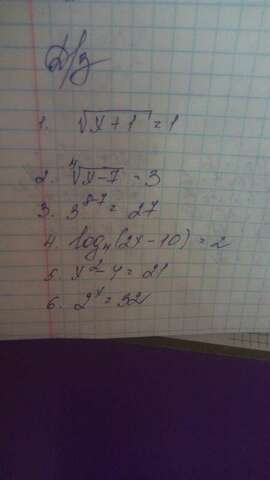 Д/з
1. √x+1 = 1
2. ⁴√x-7 = 3
3. 3^8-7 = 27
4. log₄(2x-10) = 2
5. x²-4 = 21
6. 2^x = 32